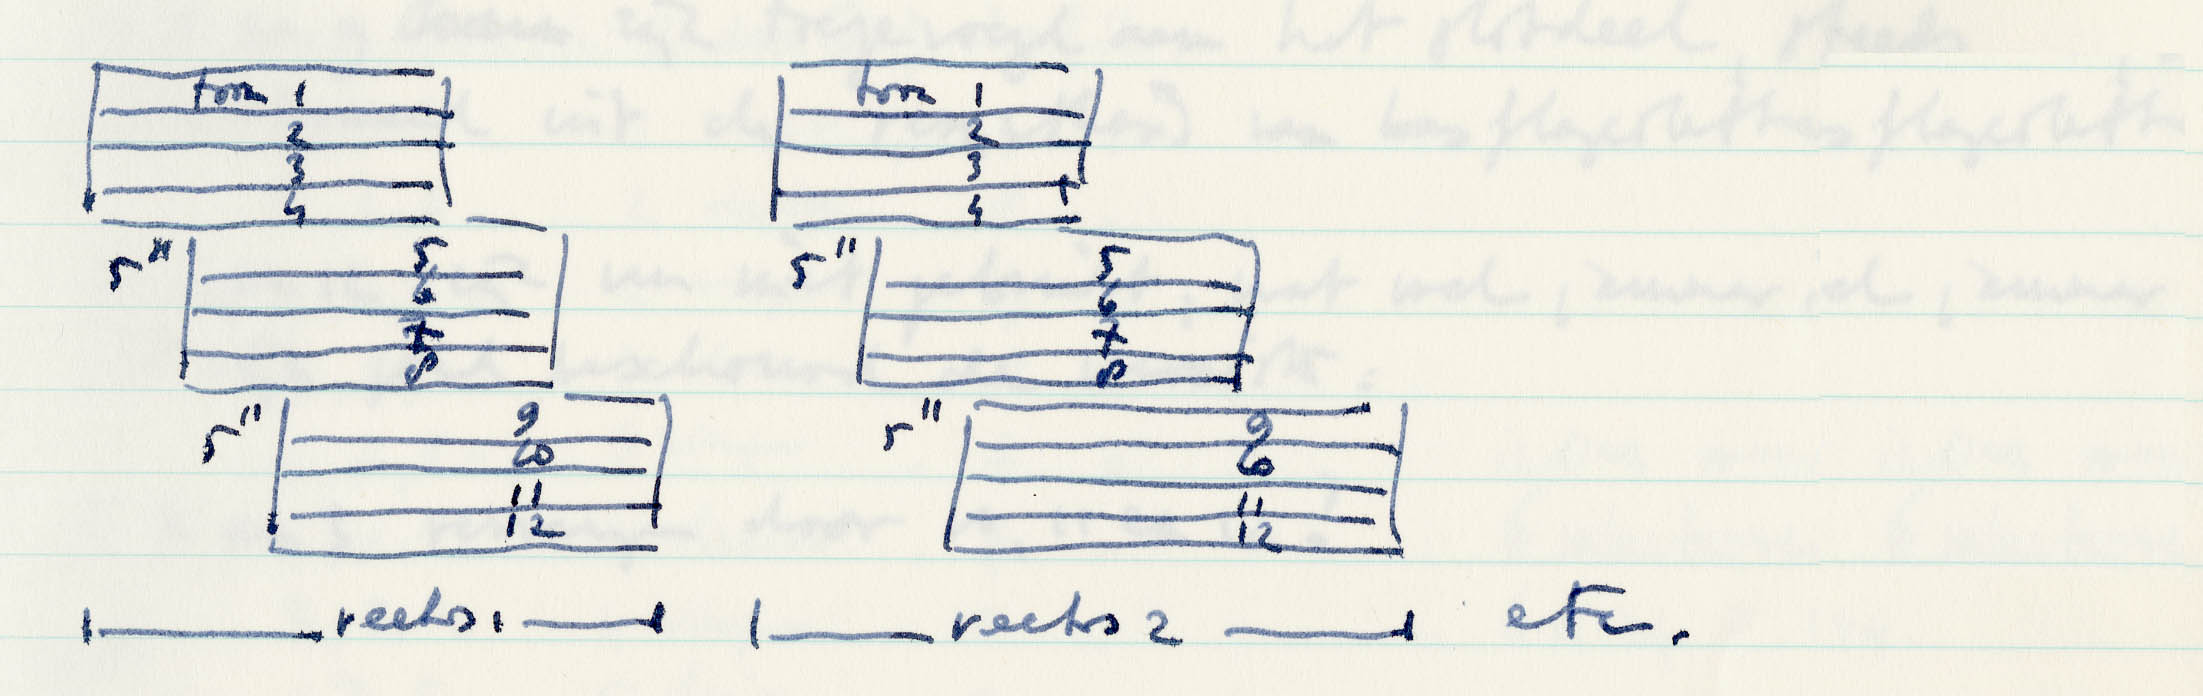 toon 1 toon 1
2 2
3 3
4 4
5" 5 5" 5
6 6
7 7
8 8
5" 9 5" 9
10 10
11 11
12 12
reeks 1 reeks 2 etc.